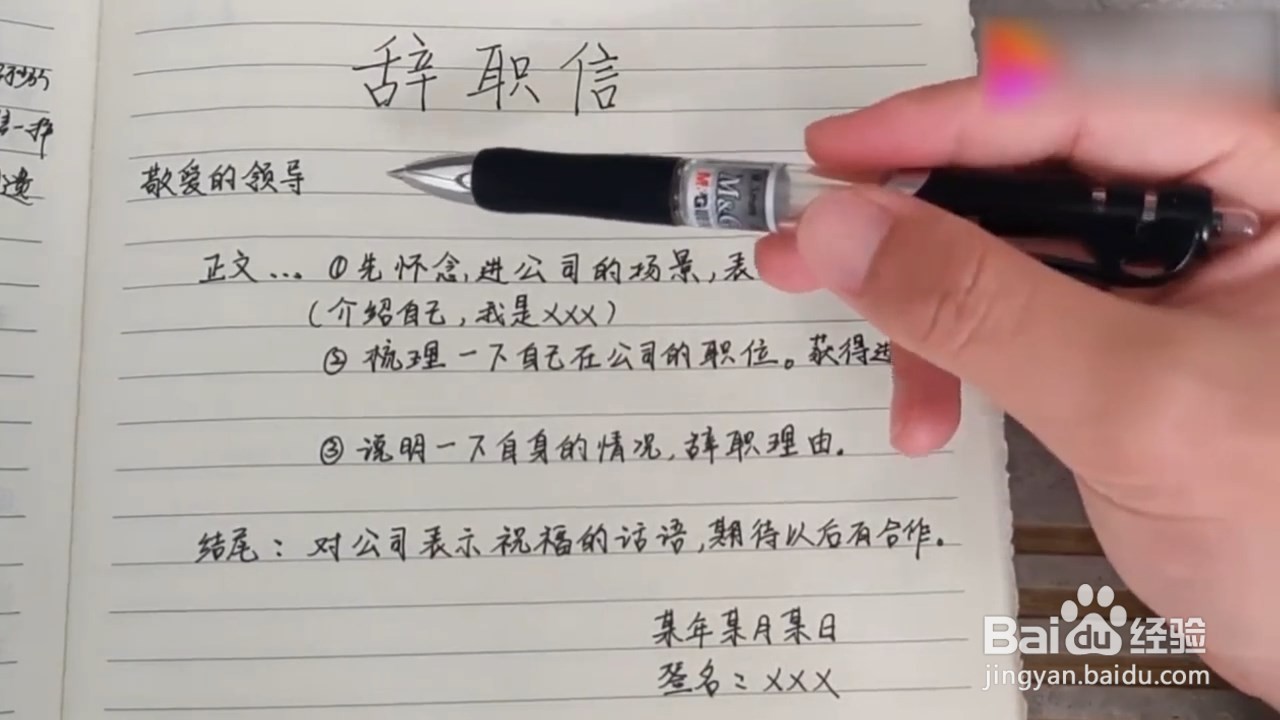 辞职信
敬爱的领导
正文... ①先怀念,进公司的场景,表
(介绍自己,我是xxx)
② 梳理一下自己在公司的职位。获得进
③ 说明一下自身的情况,辞职理由.
结尾: 对公司表示祝福的话语,期待以后有合作。
某年某月某日
签名: xxx
M&G
Baidu经验
jingyan.baidu.com